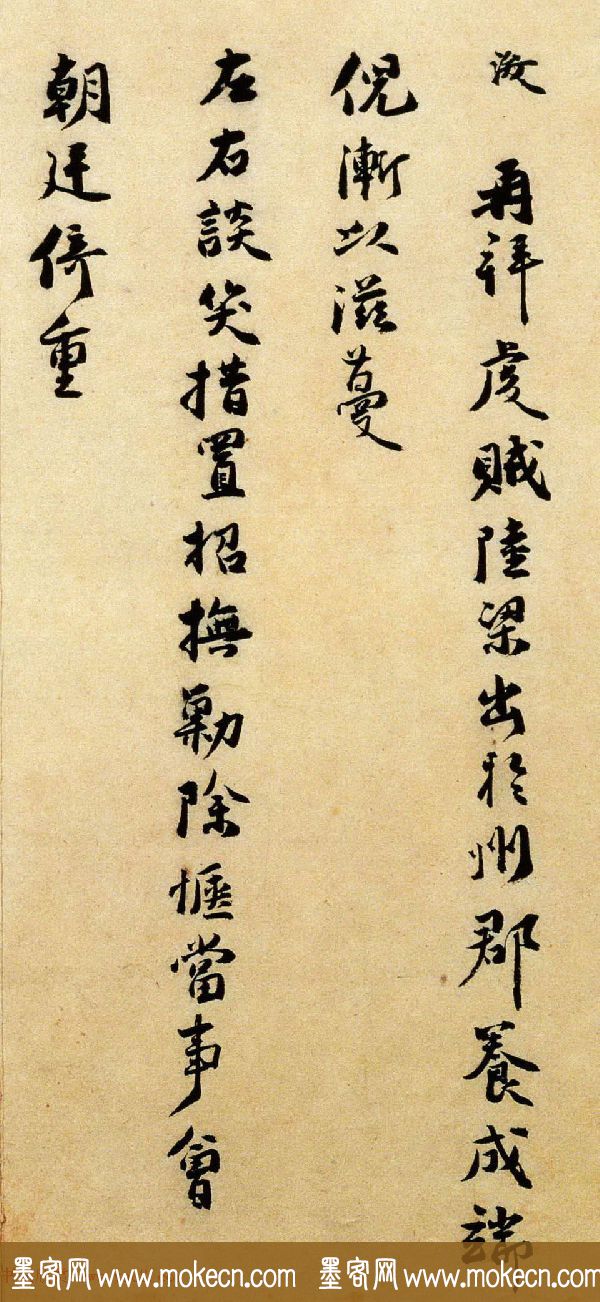 澂 再拜虔賊陸梁出於州郡養成端
倪漸以滋蔓
左右談笑措置招撫勦除愜當事會
朝廷倚重
墨客网 www.mokecn.com 墨客网 www.mokecn.com